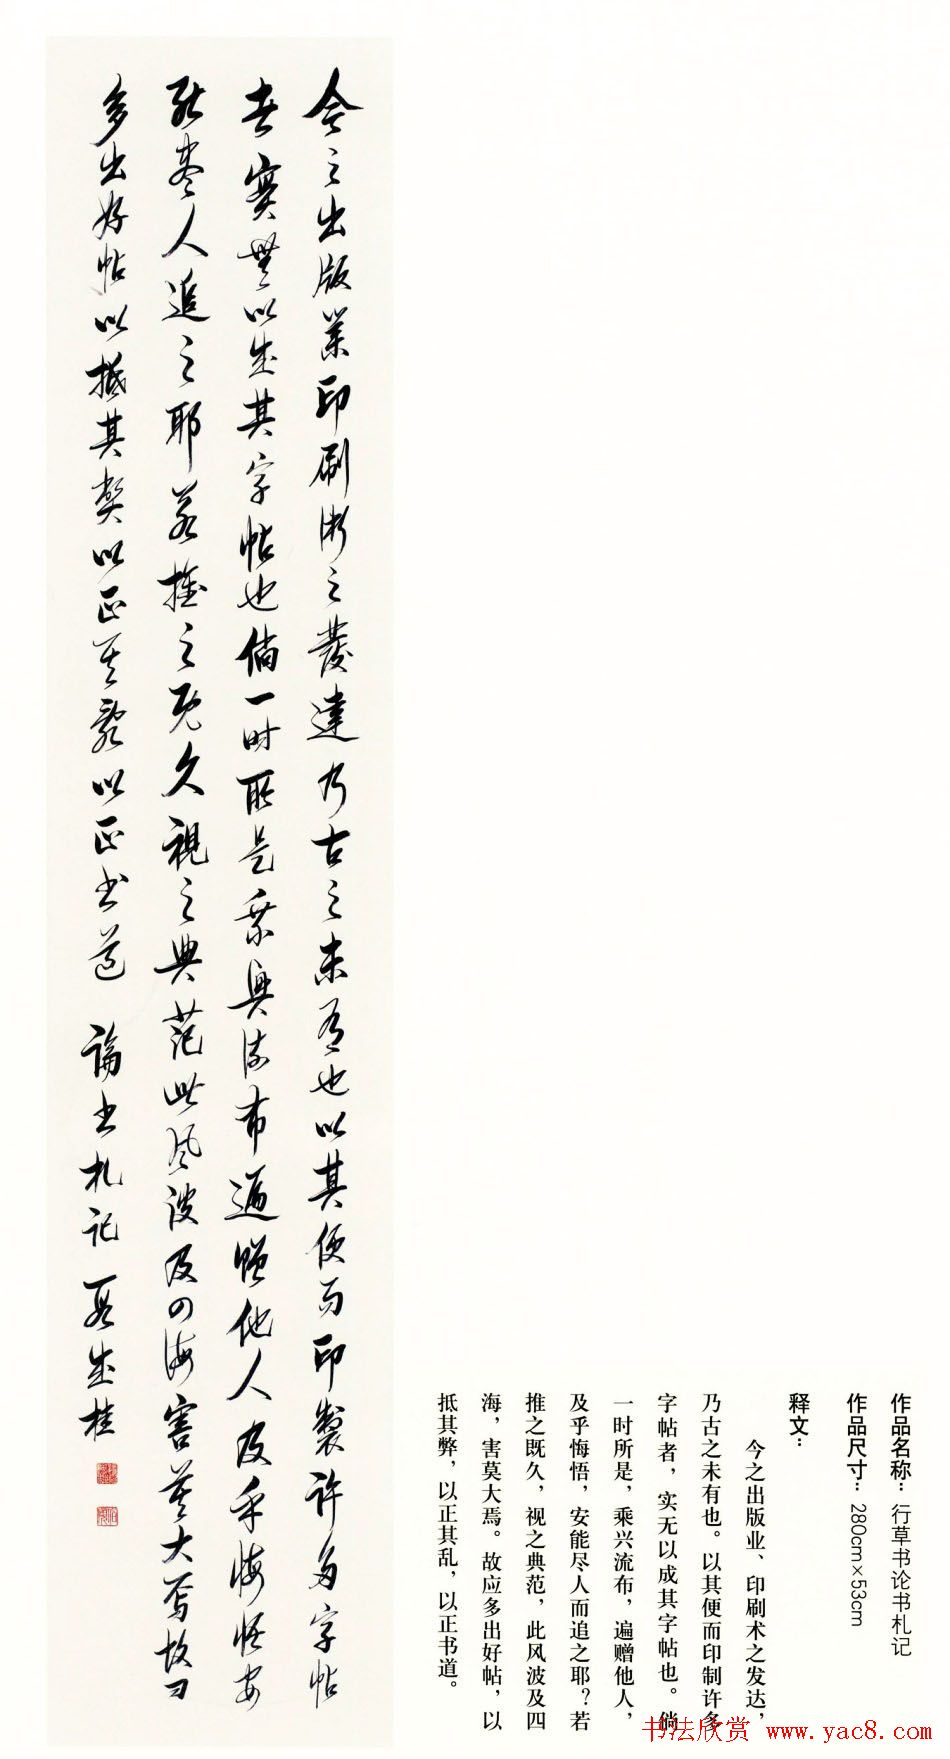 今之出版業印刷術之發達乃古之未有也以其便而印製許多字帖
者實無以成其字帖也倘一時所是乘興流布遍贈他人及乎悔悟安
能盡人追之耶若推之既久視之典范此風波及四海害莫大焉故
多出好帖以抵其弊以正其亂以正書道 論書札記 段成桂
作品名称：行草书论书札记
作品尺寸：280cm×53cm
释文：
今之出版业、印刷术之发达，
乃古之未有也。以其便而印制许多
字帖者，实无以成其字帖也。倘
一时所是，乘兴流布，遍赠他人，
及乎悔悟，安能尽人而追之耶？若
推之既久，视之典范，此风波及四
海，害莫大焉。故应多出好帖，以
抵其弊，以正其乱，以正书道。
书法欣赏 www.yac8.com